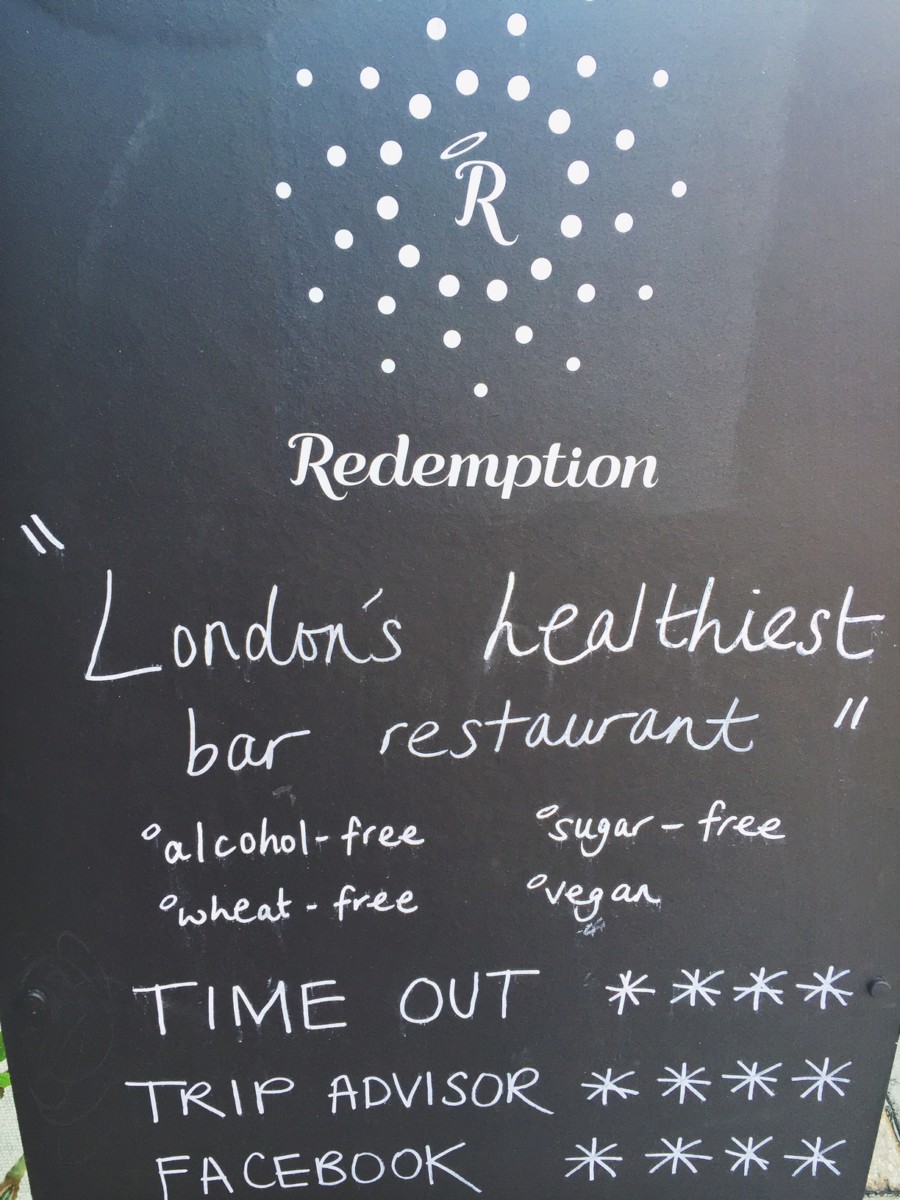 R
Redemption
"London's healthiest
bar restaurant"
°alcohol-free °sugar-free
°wheat-free °vegan
TIME OUT ****
TRIP ADVISOR ****
FACEBOOK ****